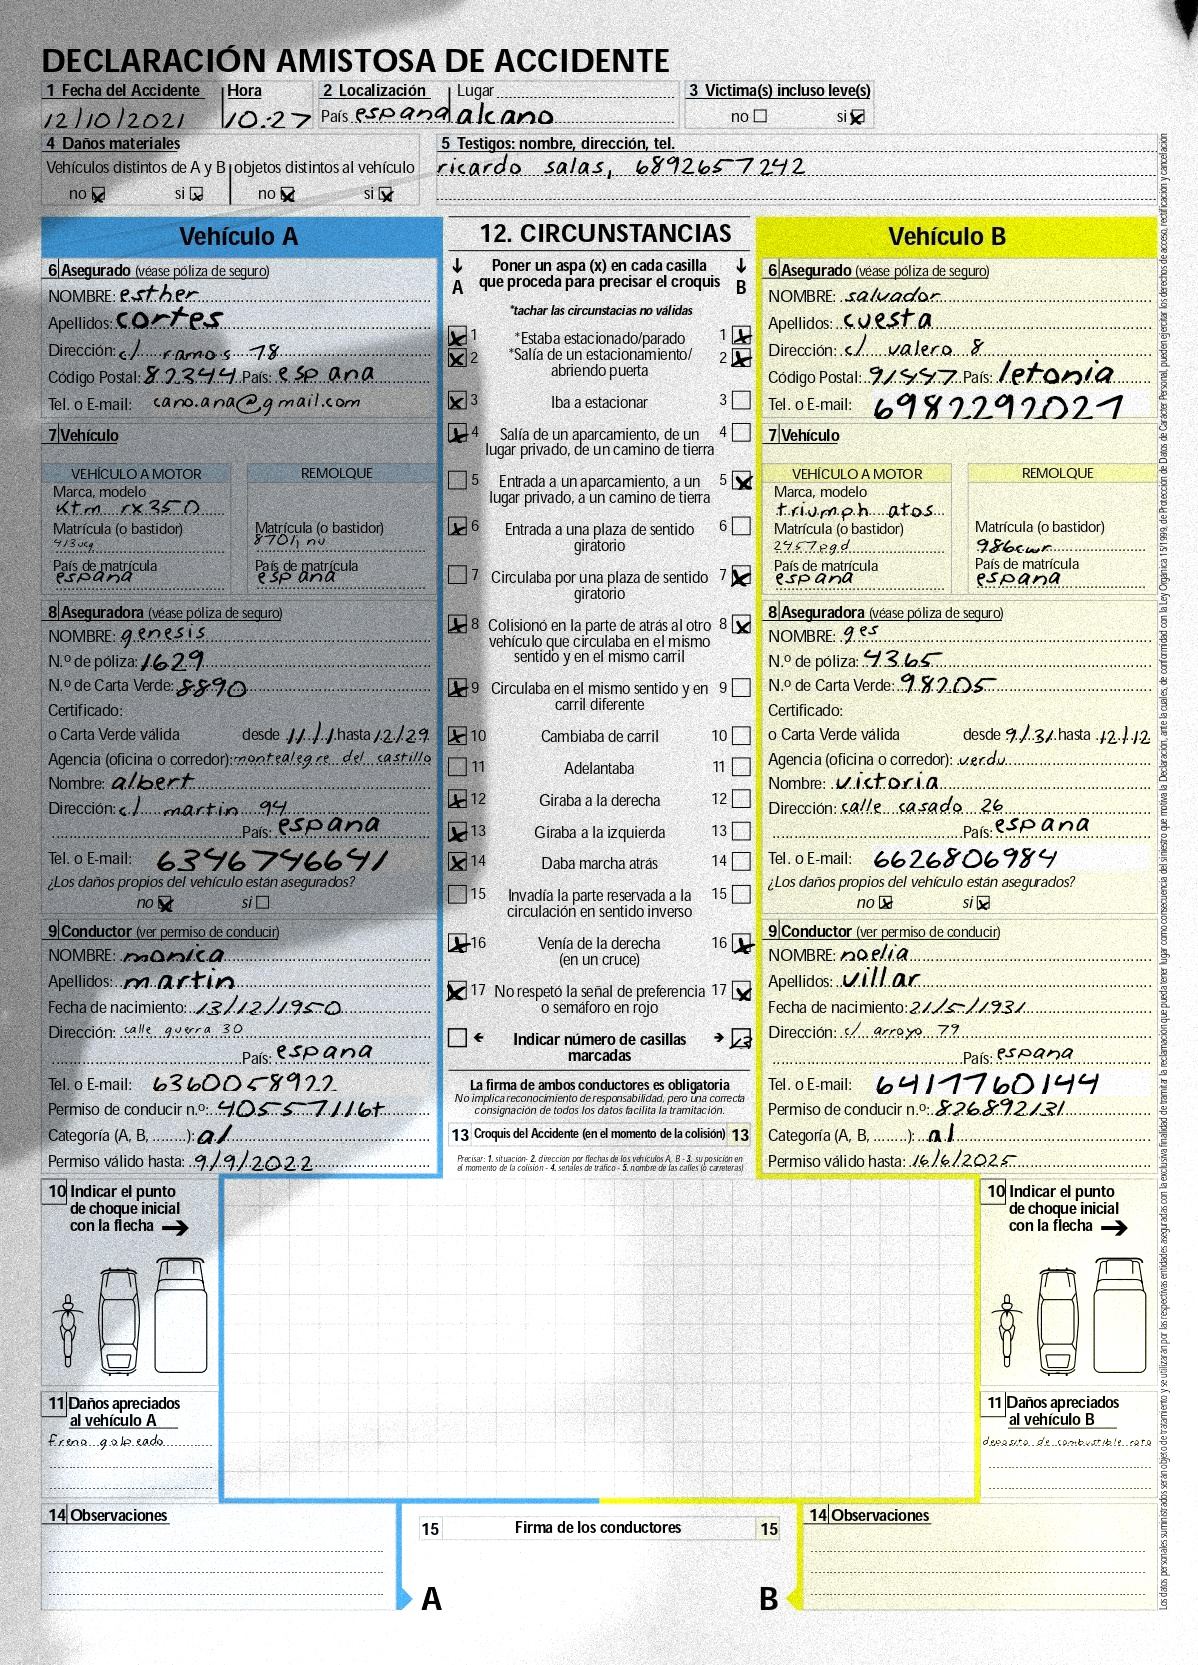 DECLARACIÓN AMISTOSA DE ACCIDENTE
1 Fecha del Accidente Hora 2 Localización Lugar 3 Victima(s) incluso leve(s)
12/10/2021 10:27 País espana alcano no si
4 Daños materiales 5 Testigos: nombre, dirección, tel.
Vehículos distintos de A y B objetos distintos al vehículo ricardo salas, 6892657242
no si no si
Vehículo A
6 Asegurado (véase póliza de seguro)
NOMBRE: esther
Apellidos: cortes
Dirección: c/ ramos 78
Código Postal: 82344 País: espana
Tel. o E-mail: cano.ana@gmail.com
7 Vehículo
VEHÍCULO A MOTOR REMOLQUE
Marca, modelo
ktm rx350
Matrícula (o bastidor) Matrícula (o bastidor)
413ucg 8701, nu
País de matrícula País de matrícula
espana espana
8 Aseguradora (véase póliza de seguro)
NOMBRE: genesis
N.º de póliza: 1629
N.º de Carta Verde: 8890
Certificado:
o Carta Verde válida desde 11/1 hasta 12/29
Agencia (oficina o corredor): montealegre del castillo
Nombre: albert
Dirección: c/ martin 94
País: espana
Tel. o E-mail: 6346746641
¿Los daños propios del vehículo están asegurados?
no si
9 Conductor (ver permiso de conducir)
NOMBRE: monica
Apellidos: martin
Fecha de nacimiento: 13/12/1950
Dirección: calle guerra 30
País: espana
Tel. o E-mail: 6360058922
Permiso de conducir n.º: 40557116t
Categoría (A, B, ........): a1
Permiso válido hasta: 9/9/2022
12. CIRCUNSTANCIAS
Poner un aspa (x) en cada casilla
A que proceda para precisar el croquis B
*tachar las circunstacias no válidas
1 *Estaba estacionado/parado 1
2 *Salía de un estacionamiento/ 2
abriendo puerta
3 Iba a estacionar 3
4 Salía de un aparcamiento, de un 4
lugar privado, de un camino de tierra
5 Entrada a un aparcamiento, a un 5
lugar privado, a un camino de tierra
6 Entrada a una plaza de sentido 6
giratorio
7 Circulaba por una plaza de sentido 7
giratorio
8 Colisionó en la parte de atrás al otro 8
vehículo que circulaba en el mismo
sentido y en el mismo carril
9 Circulaba en el mismo sentido y en 9
carril diferente
10 Cambiaba de carril 10
11 Adelantaba 11
12 Giraba a la derecha 12
13 Giraba a la izquierda 13
14 Daba marcha atrás 14
15 Invadía la parte reservada a la 15
circulación en sentido inverso
16 Venía de la derecha 16
(en un cruce)
17 No respetó la señal de preferencia 17
o semáforo en rojo
Indicar número de casillas 13
marcadas
La firma de ambos conductores es obligatoria
No implica reconocimiento de responsabilidad, pero una correcta
consignación de todos los datos facilita la tramitación.
13 Croquis del Accidente (en el momento de la colisión) 13
Precisar: 1. situación- 2. dirección por flechas de los vehículos A, B - 3. su posición en
el momento de la colisión - 4. señales de tráfico - 5. nombre de las calles (o carreteras)
Vehículo B
6 Asegurado (véase póliza de seguro)
NOMBRE: salvador
Apellidos: cuesta
Dirección: c/ valero 8
Código Postal: 91447 País: letonia
Tel. o E-mail: 6982292021
7 Vehículo
VEHÍCULO A MOTOR REMOLQUE
Marca, modelo
triumph atos
Matrícula (o bastidor) Matrícula (o bastidor)
2457pgd 986cwr
País de matrícula País de matrícula
espana espana
8 Aseguradora (véase póliza de seguro)
NOMBRE: ges
N.º de póliza: 4365
N.º de Carta Verde: 98205
Certificado:
o Carta Verde válida desde 9/31 hasta 12/12
Agencia (oficina o corredor): verdu
Nombre: victoria
Dirección: calle casado 26
País: espana
Tel. o E-mail: 6626806984
¿Los daños propios del vehículo están asegurados?
no si
9 Conductor (ver permiso de conducir)
NOMBRE: noelia
Apellidos: villar
Fecha de nacimiento: 21/5/1931
Dirección: c/ arroyo 79
País: espana
Tel. o E-mail: 6417760144
Permiso de conducir n.º: 82689213l
Categoría (A, B, ........): a1
Permiso válido hasta: 16/6/2025
10 Indicar el punto
de choque inicial
con la flecha
11 Daños apreciados
al vehículo A
freno golpeado
10 Indicar el punto
de choque inicial
con la flecha
11 Daños apreciados
al vehículo B
deposito de combustible roto
14 Observaciones
15 Firma de los conductores 15
A B
14 Observaciones
Los datos personales suministrados seran objeto de tratamiento y se utilizaran por las respectivas entidades aseguradas con la exclusiva finalidad de tramitar la reclamación que pueda tener lugar como consecuencia del siniestro que motiva la Declaración, ante la cuales, de conformidad con la Ley Orgánica 15/1999, de Protección de Datos de Carácter Personal, pueden ejercitar los derechos de acceso, rectificación y cancelación